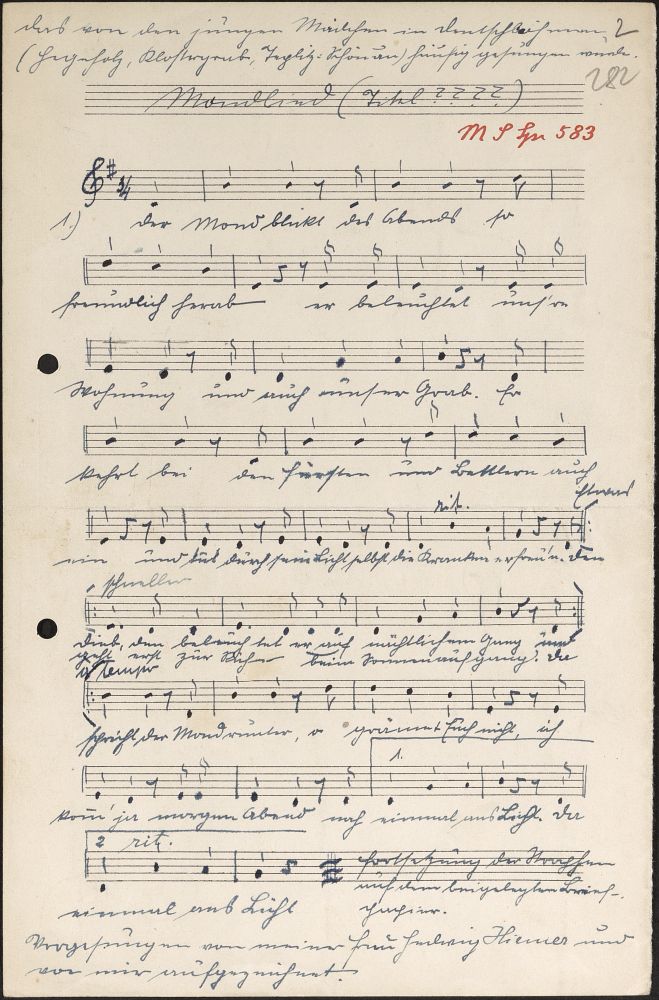 das von den jungen Mädchen in Deutschböhmen 2
(Hegeholz, Klostergrab, Teplitz-Schönau) häufig gesungen wurde.
282
Mondlied (Titel ????)
M S Spr 583
3/4
1.) Der Mond blickt des Abends so
freundlich herab er beleuchtet uns're
Wohnung und auch unser Grab. Er
kehrt bei den Fürsten und Bettlern auch
Etwas
rit.
ein und tut durch sein Licht selbst die Kranken erfreu'n. Den
schneller
Dieb, den beleuchtet er auf nächtlichem Gang und
geht erst zur Ruhe beim Sonnenaufgang. Da
a tempo
spricht der Mond runter, o grämet Euch nicht, ich
1.
komm' ja morgen Abend noch einmal ans Licht. Da
2 rit.
Fortsetzung der Strophen
auf dem beigelegten Brief-
einmal ans Licht papier.
Vorgesungen von meiner Frau Hedwig Hiemer und
von mir aufgezeichnet.